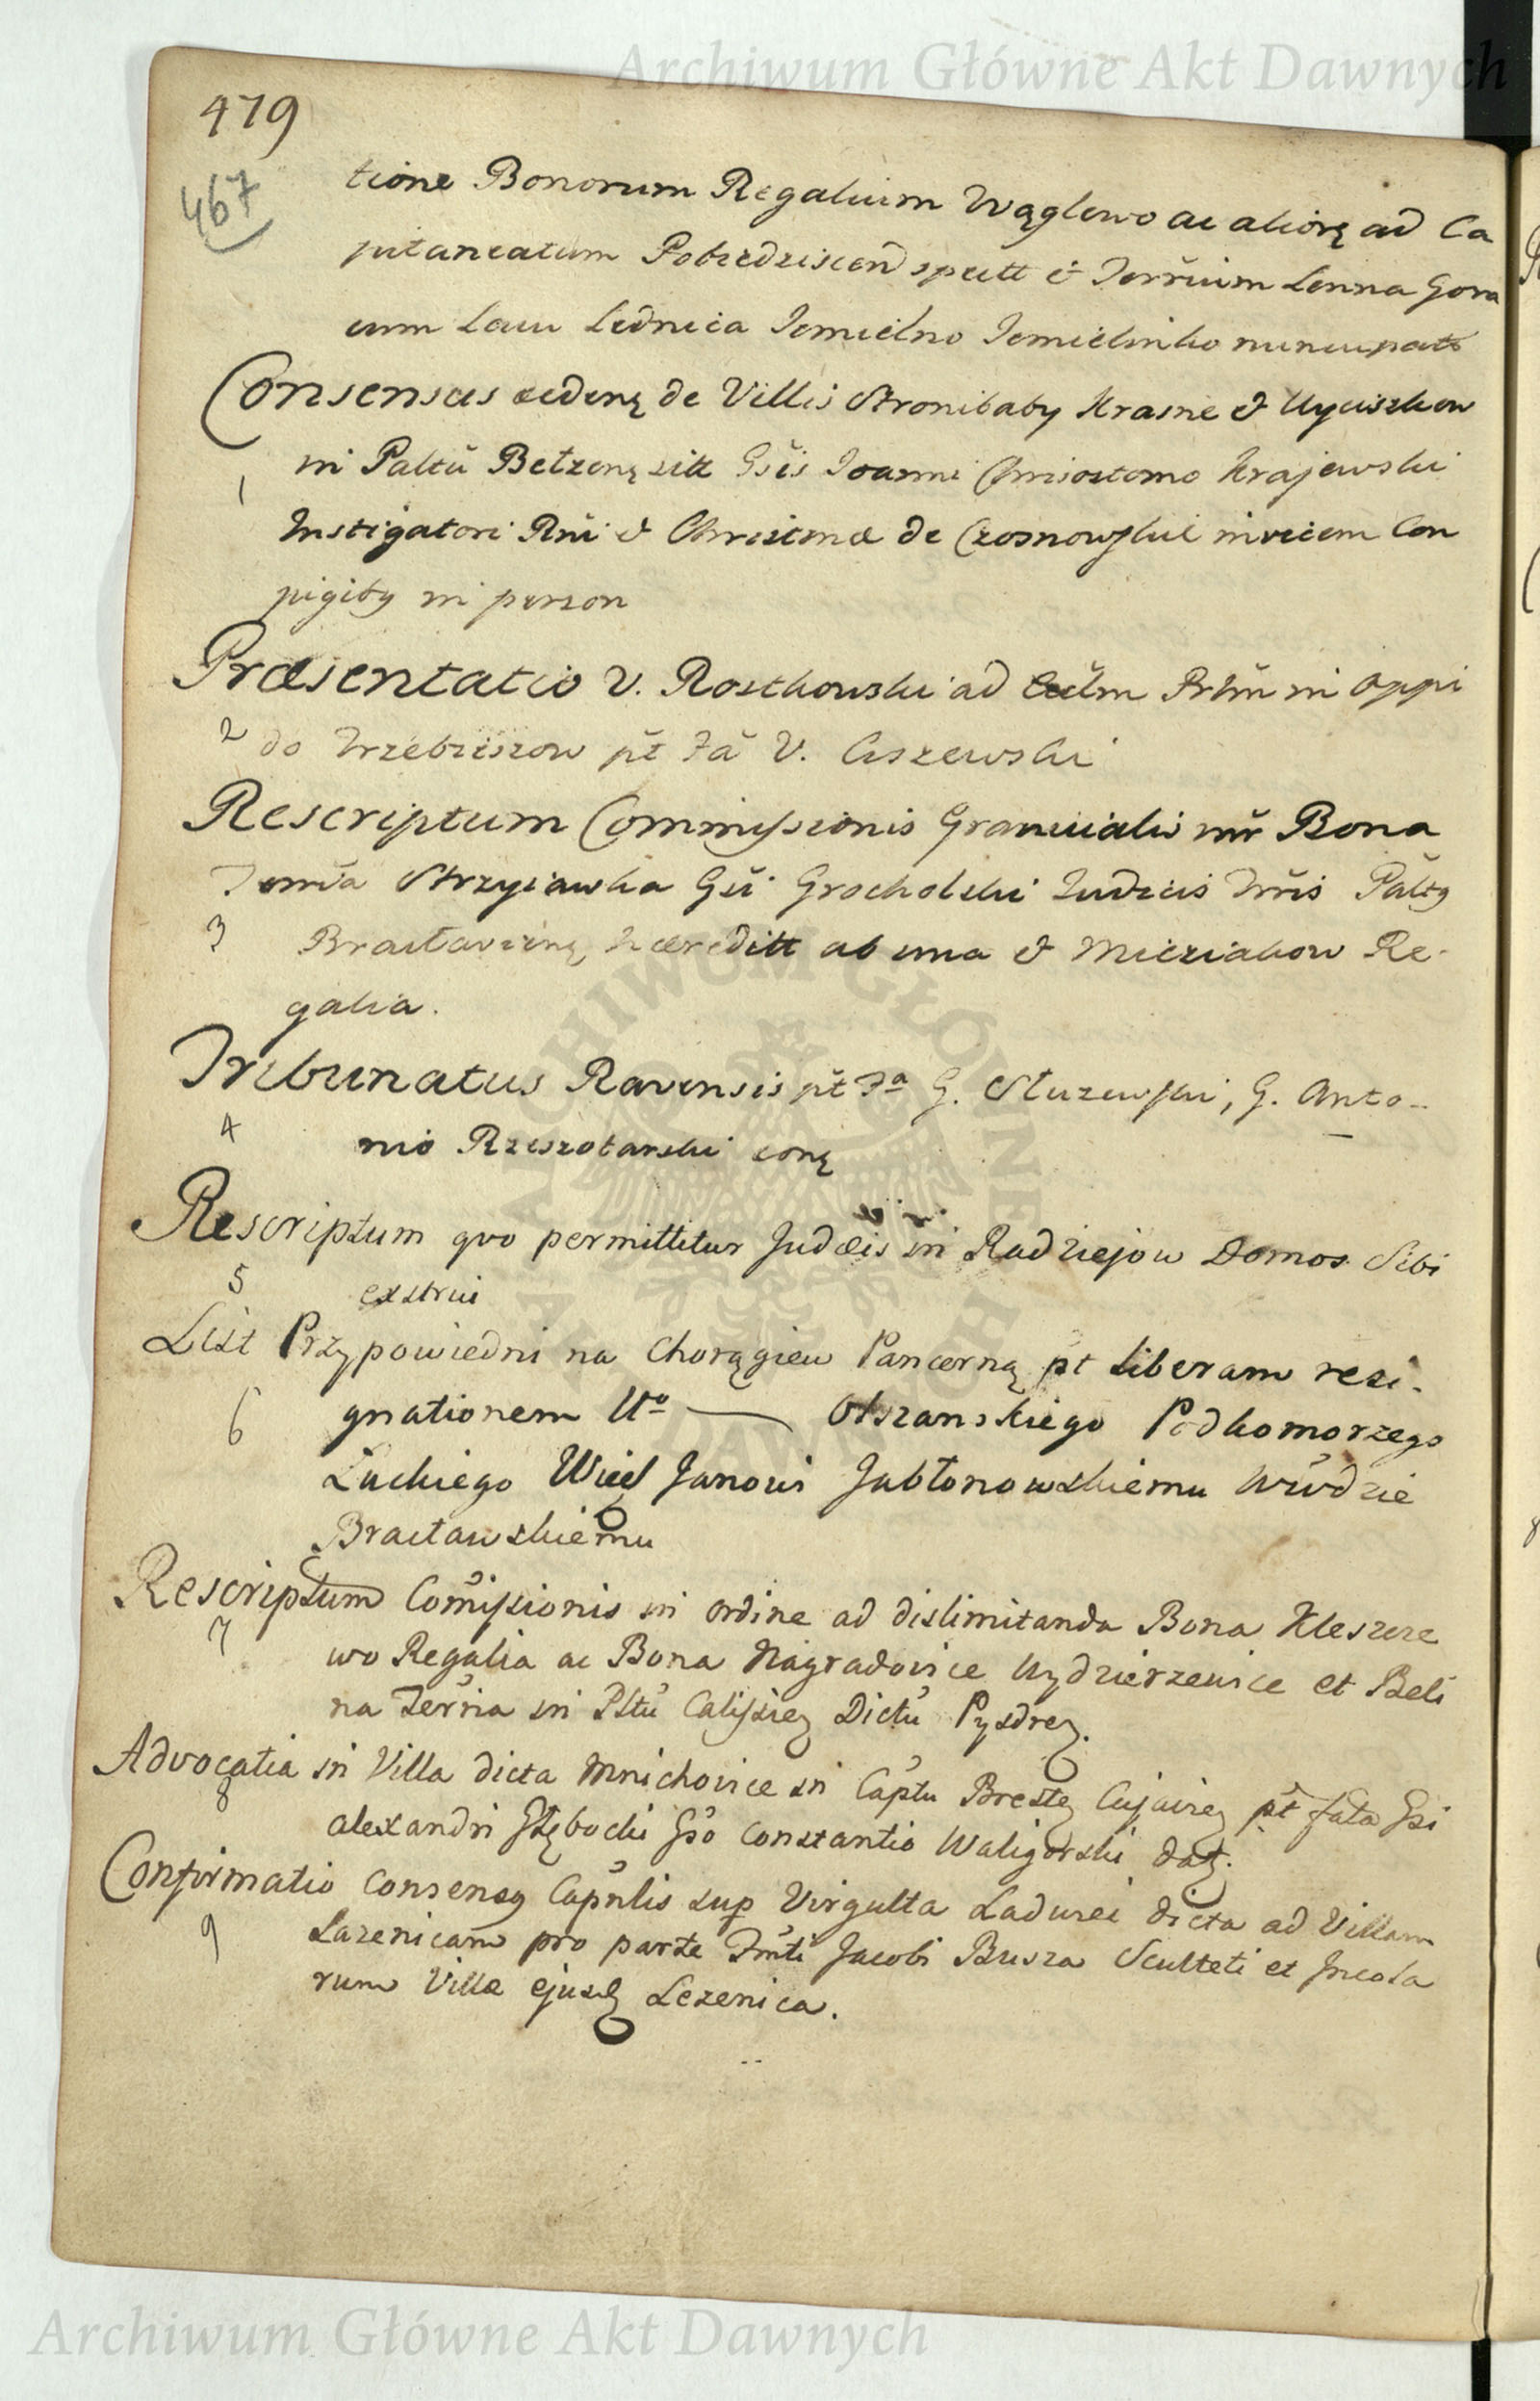 Archiwum Główne Akt Dawnych
479
467
tione Bonorum Regalium Wąglewo ac aliorę ad Ca
pitaneatum Pobiedziscen spectt & Terrium Lenna Gora
cum Lacu Lednica Jemielno Jemielinko nuncupato
Consensus cedenę de Villis Stronibaby Krasne & Uyciszkow
1
in Paltũ Bełzenę sitt Gsis Joanni Chrisostomo Krajewski
Instigatori Rni & Christinæ de Czosnowskie invicem Con
jugibg in person
Præsentatio V. Rostkowski ad Ecclm Prlm in Oppi
2
do Trzebieszow pt Fã V. Ciszewski
Rescriptum Commissionis Granicialis intr Bona
Terria Strzyiawka Gsi Grocholski Judicis Trris Paltg
3
Bracłavienę hæreditt ab una & Mieziakow Re-
galia.
Tribunatus Ravensis pt Fa G. Służewski, G. Anto-
4
nio Rzeszotarski conę
Rescriptum quo permittitur Judæis in Radziejow Domos Sibi
5
exstrui
List Przypowiedni na Chorągiew Pancerną pt Liberam resi-
6
gnationem Uo — Olszanskiego Podkomorzego
Łuckiego Wiel Janowi Jabłonowskiemu Wwdzie
Bracławskiemu
Rescriptum Comissionis in ordine ad dislimitanda Bona Kleszcze
7
wo Regalia ac Bona Nagradowice Uzdzierzewice et Beli
na Terria in Pltu Calissien Dictu Pyzdren.
Advocatia in Villa dicta Mnichowice in Captu Bresten Cujavien pt fata Gsi
8
Alexandri Głębocki Gso Constantio Waligorski dat.
Confirmatio Consensg Capnlis sup Virgulta Ladusei dicta ad Villam
9
Lazenicam pro parte Fmti Jacobi Busza Sculteti et Incola
rum Villæ ejusd Lezenica.
Archiwum Główne Akt Dawnych